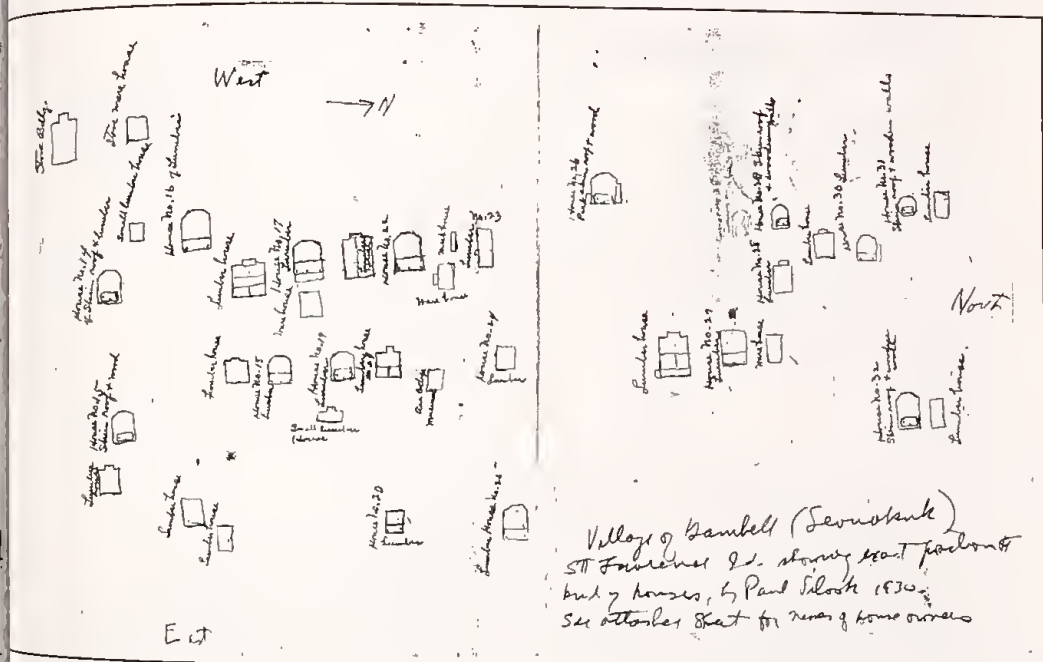 West
→ N
Store Bldg.
Store ware house
Small lumber house
House No. 16 of Lumber
House No. 14
of Skin roof & lumber
Lumber house
House No. 17
Lumber
House No. 22
Ware house
Lumber
No. 23
Lumber house
House No. 15
Lumber
House No. 19
Lumber
Lumber house
Small lumber
House
House No. 24
Lumber
Skin roof & wood
Lumber
house
Lumber house
Lumber house
House No. 20
Lumber
Lumber House No.
East
House No. 26
skin roof & wood
House No. 28 Skin roof
& wooden walls
Lumber
Lumber house
House No. 30 Lumber
House No. 31
Skin roof & wooden walls
Lumber house
Lumber house
House No. 29
Lumber
North
House No. 32
Skin roof &
Lumber house.
Village of Gambell (Sevuokuk)
St Lawrence Id. showing exact position &
kind of houses, by Paul Silook 1930.
See attached sheet for names of home owners